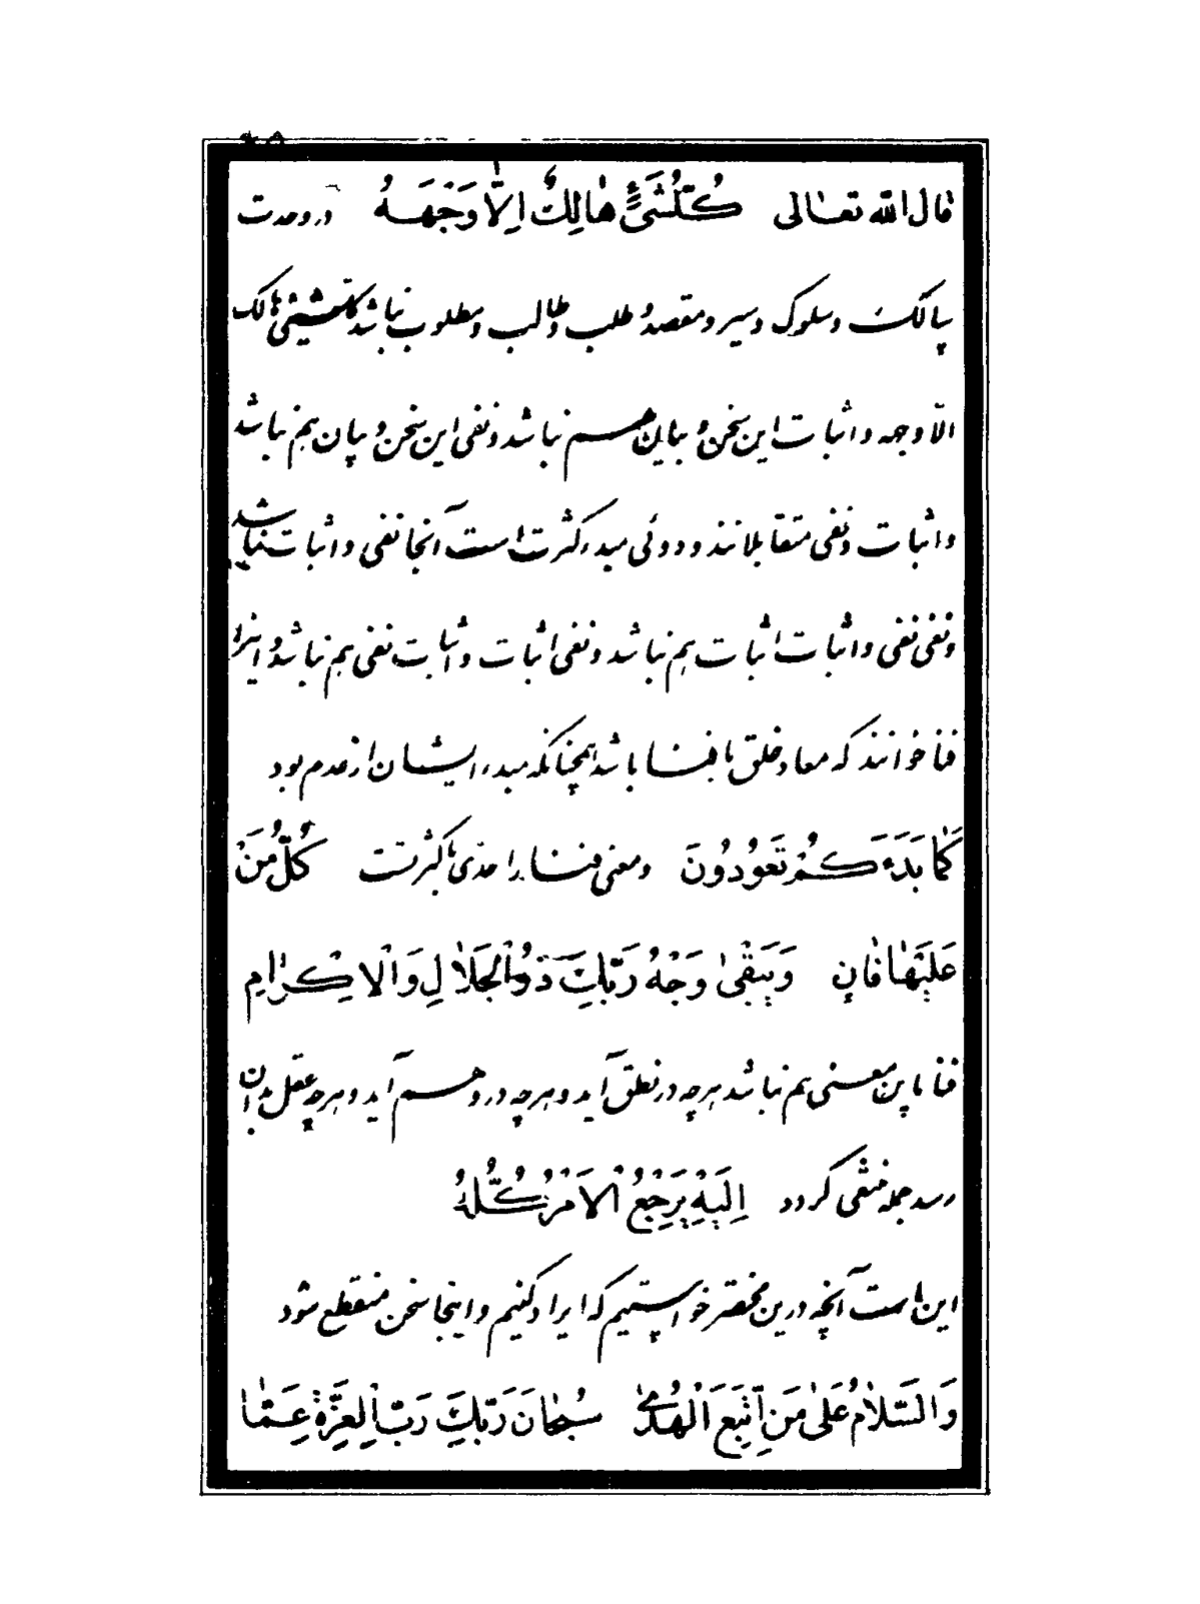 قال الله تعالی کُلُّ شَیْءٍ هٰالِکٌ اِلّٰا وَجْهَهُ در وحدت
سالک و سلوک و سیر و مقصد و طلب و طالب و مطلوب نباشد کل شیئ هالک
الّا وجهه و اثبات این سخن و بیان هم نباشد و نفی این سخن و بیان هم نباشد
و اثبات و نفی متقابلانند و دوئی مبدء کثرت است آنجا نفی و اثبات نباشد
و نفی نفی و اثبات اثبات هم نباشد و نفی اثبات و اثبات نفی هم نباشد و اینرا
فنا خوانند که معاد خلق با فنا باشد همچنانکه مبدء ایشان از عدم بود
کَمٰا بَدَءَکُمْ تَعُودُونَ و معنی فنا را حدی با کثرتست کُلُّ مَنْ
عَلَیْهٰا فٰانٍ وَ یَبْقٰی وَجْهُ رَبِّکَ ذُو الْجَلٰالِ وَ الْاِکْرٰامِ
فنا باین معنی هم نباشد هرچه در نطق آید و هرچه در وهم آید و هرچه عقل بدان
رسد جمله منتفی گردد اِلَیْهِ یَرْجِعُ الْاَمْرُ کُلُّهُ
این است آنچه درین مختصر خواستیم که ایراد کنیم و اینجا سخن منقطع شود
وَ السَّلٰامُ عَلٰی مَنِ اتَّبَعَ الْهُدٰی سُبْحٰانَ رَبِّکَ رَبِّ الْعِزَّةِ عَمّٰا